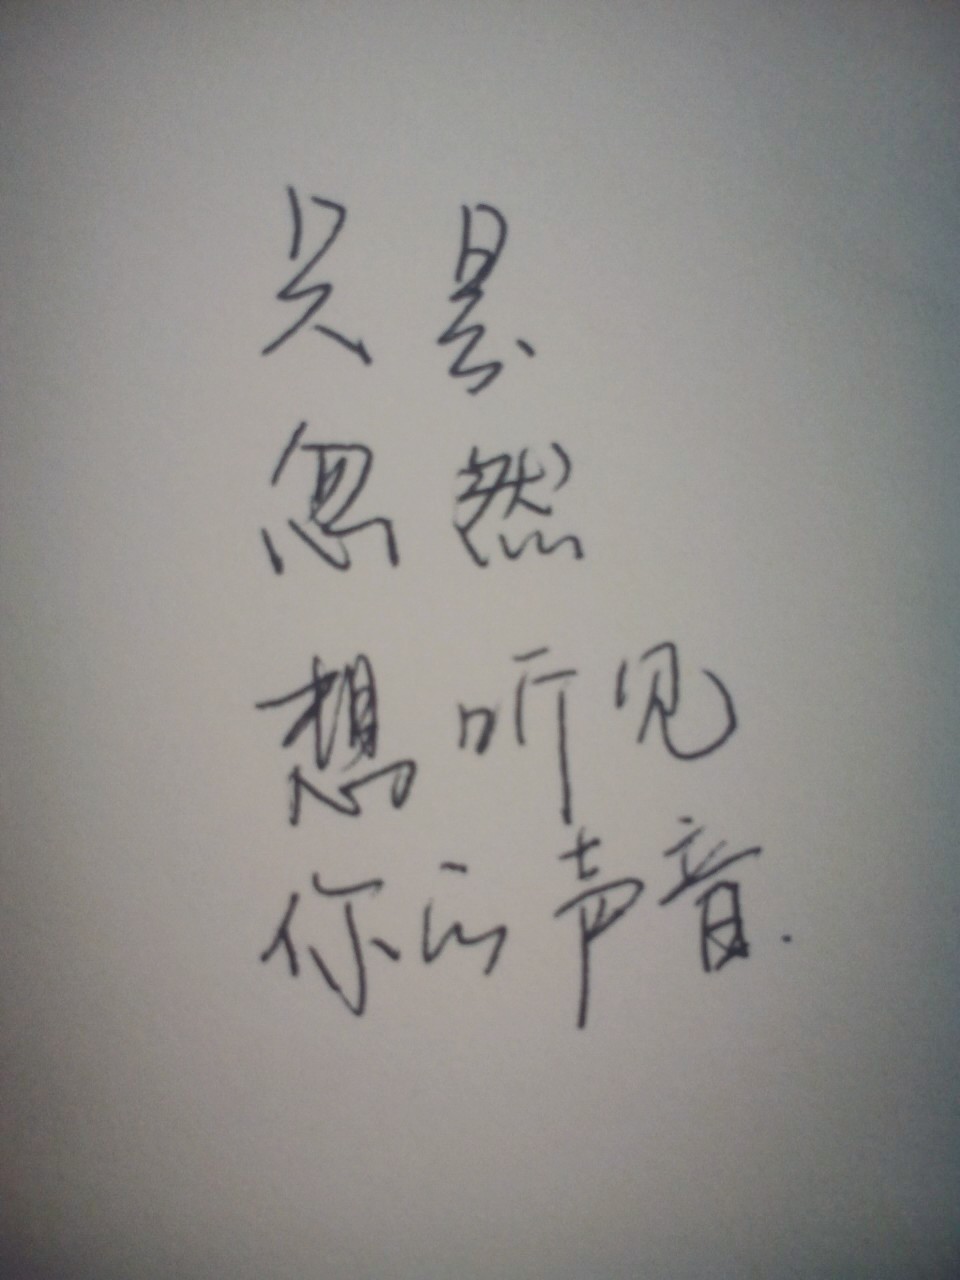 只是
忽然
想听见
你的声音.